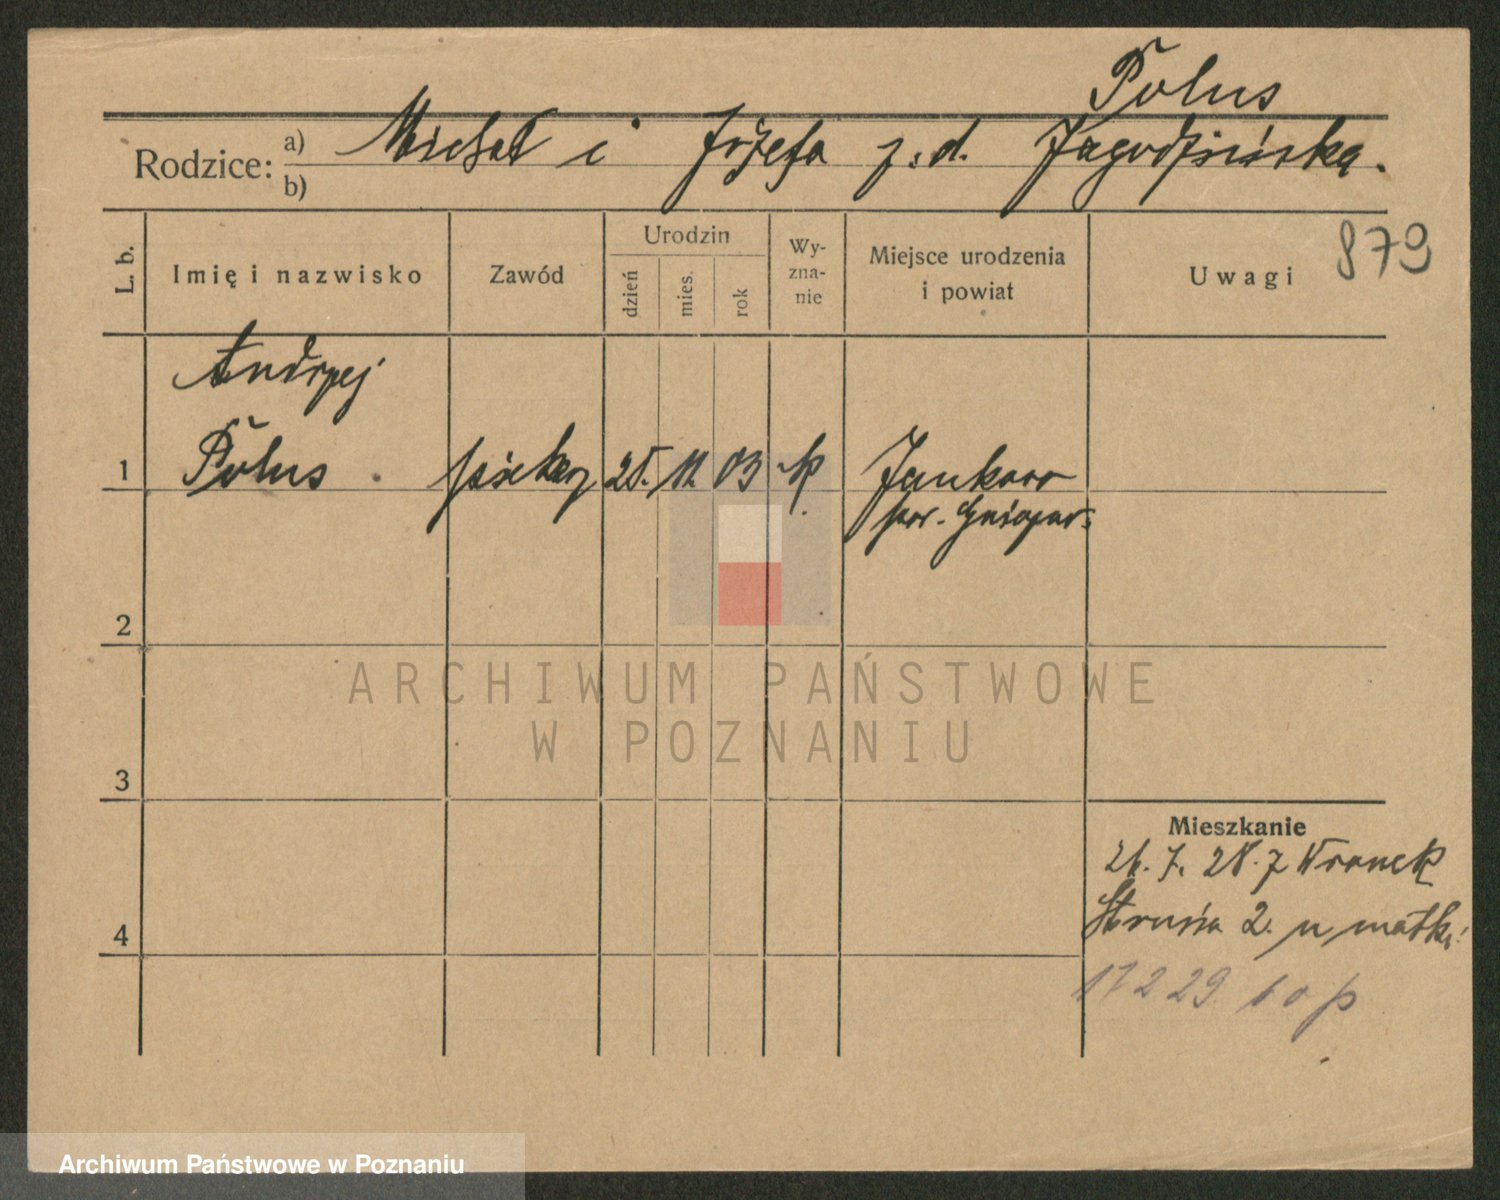 Polus
Rodzice: a) Michał i Józefa z.d. Jagodzińska.
b)
879
L. b. Imię i nazwisko Zawód Urodzin dzień mies. rok Wy-zna-nie Miejsce urodzenia i powiat Uwagi
Andrzej
1 Polus piekarz 25. 11. 03 k. Jankowo
pow. Gniezno
2
ARCHIWUM PAŃSTWOWE
W POZNANIU
3
Mieszkanie
26. 7. 28. z Wronek
Strusia 2. u matki
4
17 2 29
Archiwum Państwowe w Poznaniu